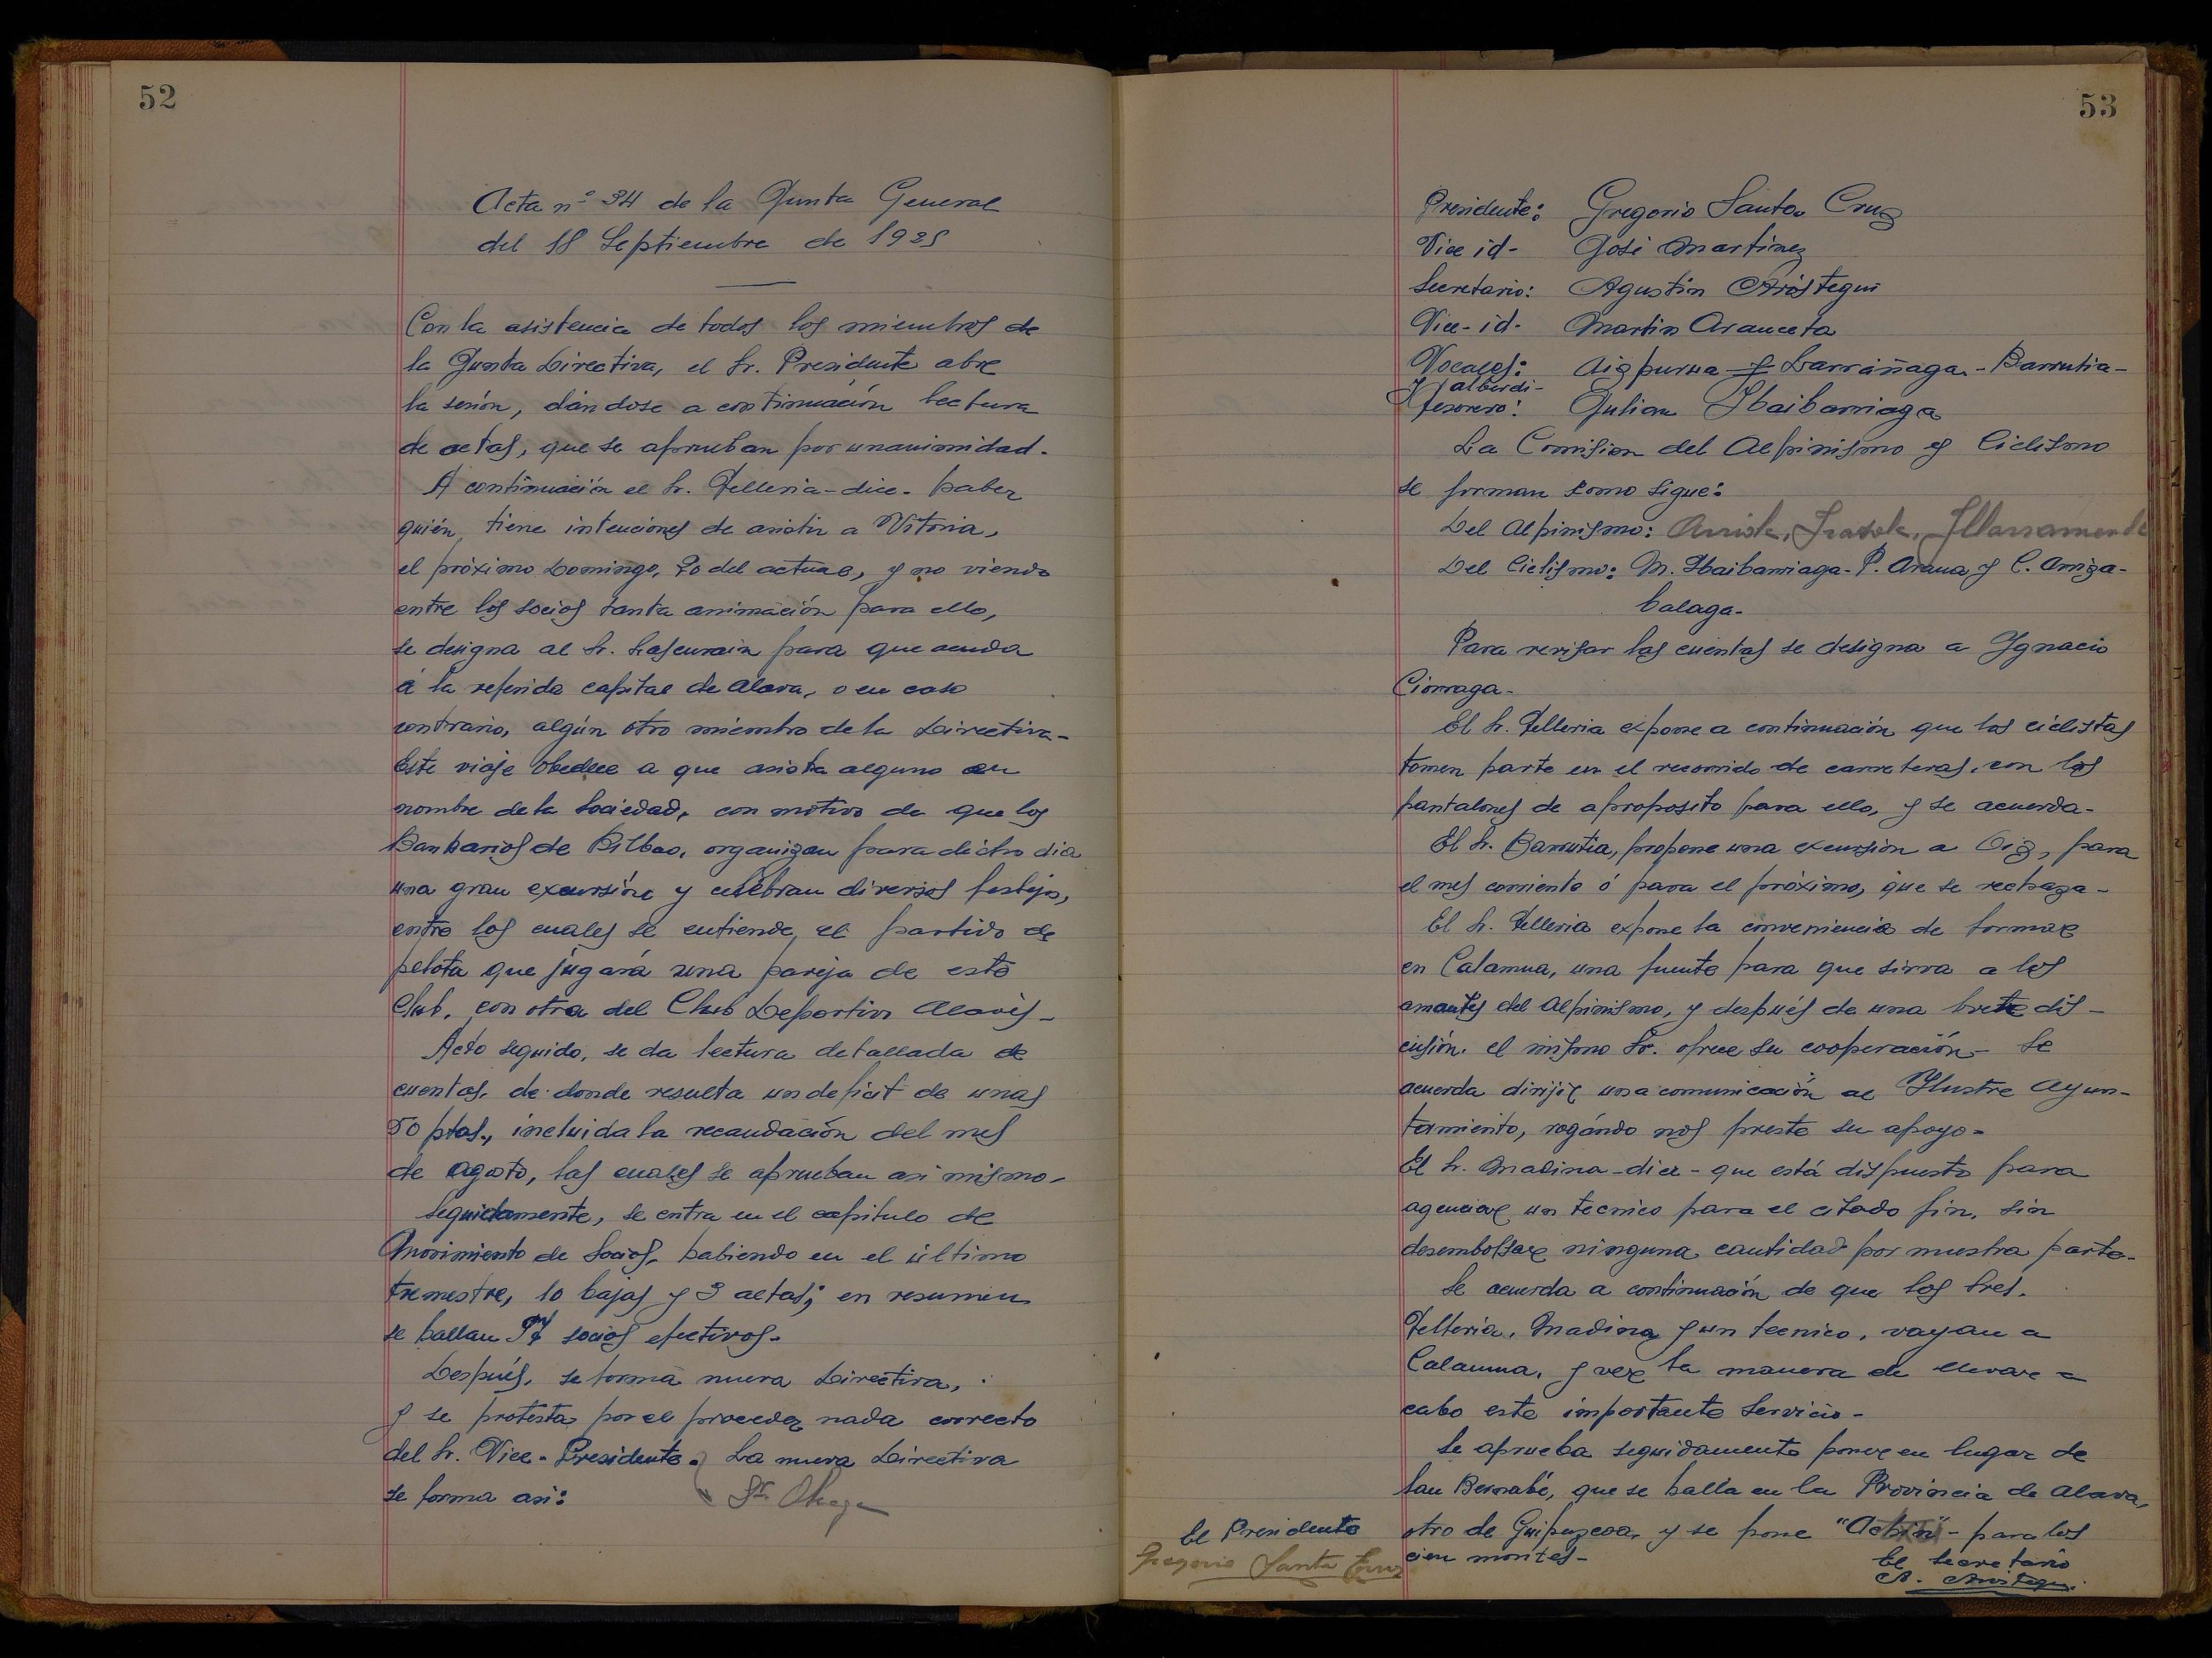 52
Acta nº 34 de la Junta General
del 18 Septiembre de 1925
Con la asistencia de todos los miembros de
la Junta Directiva, el Sr. Presidente abre
la sesión, dándose a continuación lectura
de actas, que se aprueban por unanimidad.
A continuación el Sr. Telleria - dice - haber
quién tiene intenciones de asistir a Vitoria,
el próximo Domingo, 20 del actual, y no viendo
entre los socios tanta animación para ello,
se designa al Sr. Lascurain para que acuda
a la referida capital de Alava, o en caso
contrario, algún otro miembro de la Directiva-
Este viaje obedece a que asista alguno en
nombre de la Sociedad, con motivo de que los
Bankarios de Bilbao, organizan para dicho dia
una gran excursión y celebran diversos festejos,
entre los cuales se entiende, el partido de
pelota que jugará una pareja de este
Club, con otra del Club Deportivo Alavés-
Acto seguido, se da lectura detallada de
cuentas, de donde resulta un deficit de unas
50 ptas., incluida la recaudación del mes
de Agosto, las cuales se aprueban asi mismo-
Seguidamente, se entra en el capitulo de
Movimiento de Socios, habiendo en el último
trimestre, 10 bajas y 3 altas; en resumen
se hallan socios efectivos-
Después, se forma nueva Directiva,
y se protesta por el proceder nada correcto
del Sr. Vice-Presidente. La nueva Directiva
se forma asi: Sr.
53
Presidente: Gregorio Santa Cruz
Vice id- José Martinez
Secretario: Agustin Aristegui
Vice-id- Martin Aranceta
Vocales: Aizpurua y Larrañaga - Barrutia -
y Alberdi-
Tesorero: Julian Ibaibarriaga
La Comision del Alpinismo y Ciclismo
se forman como sigue:
Del Alpinismo: Arriola, Irazola, Illarramendi
Del Ciclismo: M. Ibaibarriaga - P. Arana y C. Arriza-
balaga-
Para revisar las cuentas se designa a Ygnacio
Ciorraga-
El Sr. Telleria expone a continuación que los ciclistas
tomen parte en el recorrido de carreteras, con los
pantalones de aproposito para ello, y se acuerda-
El Sr. Barrutia, propone una excursión a Oiz, para
el mes corriente ó para el próximo, que se rechaza-
El Sr. Telleria expone la conveniencia de formar
en Calamua, una fuente para que sirva a los
amantes del Alpinismo, y después de una breve dis-
cusión, el mismo Sr. ofrece su cooperación- Se
acuerda dirijir una comunicación al Ylustre Ayun-
tamiento, rogándonos preste su apoyo-
El Sr. Madina - dice - que está dispuesto para
agenciar un tecnico para el citado fin, sin
desembolsar ninguna cantidad por nuestra parte-
Se acuerda a continuación de que los tres,
Telleria, Madina y un tecnico, vayan a
Calamua, y ver la manera de llevar a
cabo este importante servicio-
Se aprueba seguidamente poner en lugar de
San Bernabé, que se halla en la Provincia de Alava,
otro de Guipuzcoa, y se pone - para los
cien montes-
El Presidente
Gregorio Santa Cruz
El Secretario
A. Aristegui